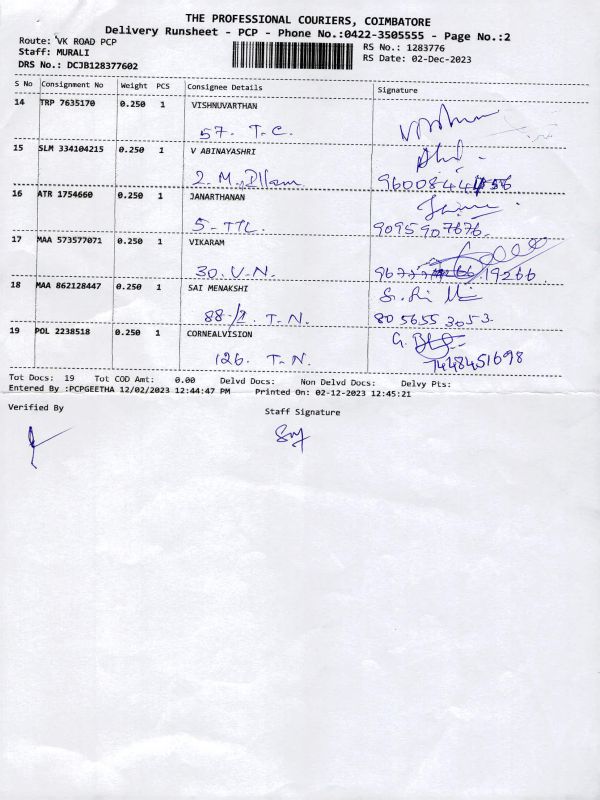 THE PROFESSIONAL COURIERS, COIMBATORE
Delivery Runsheet - PCP - Phone No.:0422-3505555 - Page No.:2
Route: VK ROAD PCP
RS No.: 1283776
Staff: MURALI
RS Date: 02-Dec-2023
DRS No.: DCJB128377602
S No Consignment No Weight PCS Consignee Details Signature
14 TRP 7635170 0.250 1 VISHNUVARTHAN
57. T.C.
15 SLM 334104215 0.250 1 V ABINAYASHRI
2. M.
16 ATR 1754660 0.250 1 JANARTHANAN
5-TTL. 9095907676.
17 MAA 573577071 0.250 1 VIKARAM
30. V.N. 19266
18 MAA 862128447 0.250 1 SAI MENAKSHI
88-/1. T.N. 805655 3053
19 POL 2238518 0.250 1 CORNEALVISION
126. T.N. 7448451698
Tot Docs: 19 Tot COD Amt: 0.00 Delvd Docs: Non Delvd Docs: Delvy Pts:
Entered By :PCPGEETHA 12/02/2023 12:44:47 PM Printed On: 02-12-2023 12:45:21
Verified By Staff Signature